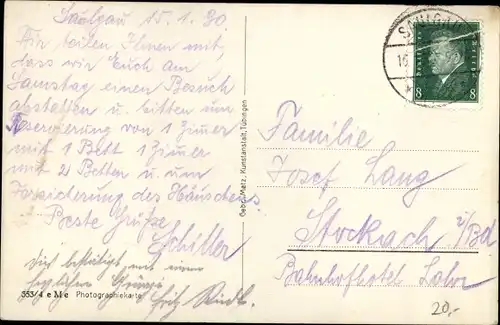 Saulgau 15.1.30
Wir teilen Ihnen mit,
dass wir Euch am
Samstag einen Besuch
abstatten u. bitten um
Reservierung von 1 Zimer
mit 1 Bett 1 Zimer
mit 2 Betten u. um
des Häuschens
Beste Grüsse
Schiller
mit
herzlichen Grüßen
Fritz
353/4 e M e Photographiekarte
Gebr. Metz, Kunstanstalt, Tübingen
SAULGAU
16.
8 8
Familie
Josef Lang
Stockach i/Bd
Bahnhofhotel
20,-